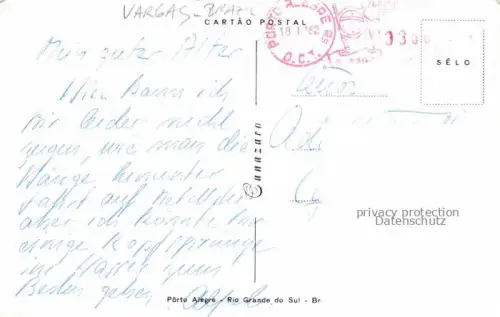 VARGAS-BRAZIL
CARTÃO POSTAL
PORTO ALEGRE RS
18
62
D.C.T.
SÊLO
Mein guter Alter
Hier kann ich
Dir leider nicht
zeigen, wie man die
Hänge herunter
fährt auf
aber ich könnte Dir
einige Kopfsprünge
ins Wasser zum
Besten geben.
Canazaro
privacy protection
Datenschutz
Pôrto Alegre - Rio Grande do Sul - Br